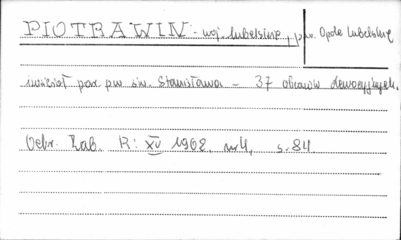 PIOTRAWIN - woj. lubelskie, pow. Opole Lubelskie
kościół par. pw św. Stanisława - 37 obrazów dewocyjnych.
Ochr. Zab. R: XV 1962, nr 4, s. 84.